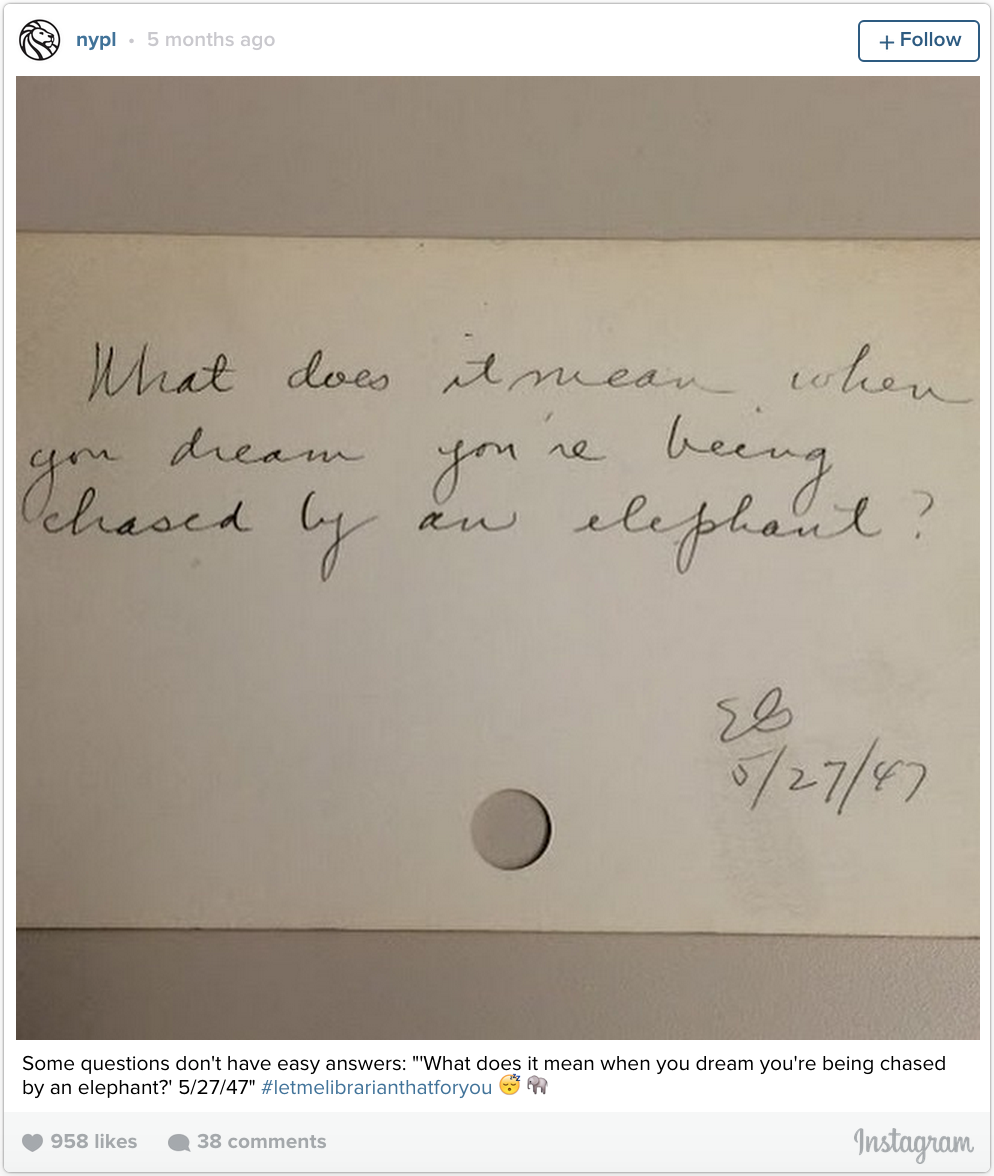 nypl • 5 months ago
+ Follow
What does it mean when
you dream you're being
chased by an elephant?
EB
5/27/47
Some questions don't have easy answers: "'What does it mean when you dream you're being chased
by an elephant?' 5/27/47" #letmelibrarianthatforyou 😴 🐘
958 likes 38 comments Instagram